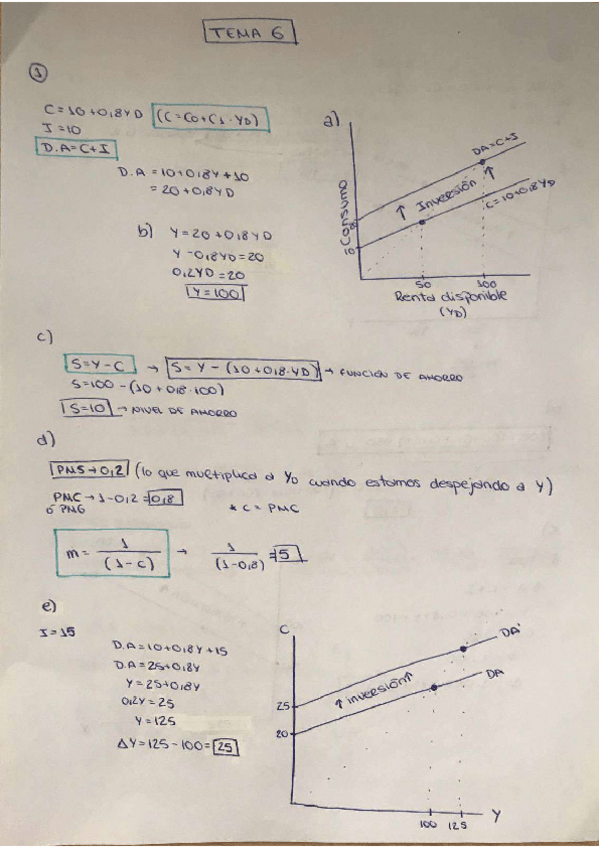 TEMA 6
1
C = 10 + 0,8YD (C = C0 + C1 · YD)
I = 10
D.A = C + I
D.A = 10 + 0,8Y + 10
= 20 + 0,8YD
a)
Consumo
10
DA = C + I
↑ Inversión ↑
C = 10 + 0,8YD
50 100
Renta disponible
(YD)
b) Y = 20 + 0,8YD
Y - 0,8YD = 20
0,2YD = 20
Y = 100
c)
S = Y - C → S = Y - (10 + 0,8·YD) → FUNCIÓN DE AHORRO
S = 100 - (10 + 0,8·100)
S = 10 → NIVEL DE AHORRO
d)
PMS → 0,2 (lo que multiplica a YD cuando estamos despejando a Y)
PMC → 1 - 0,2 = 0,8 * C = PMC
ó PMG
m = 1/(1 - C) → 1/(1 - 0,8) = 5
e)
I = 15
D.A = 10 + 0,8Y + 15
D.A = 25 + 0,8Y
Y = 25 + 0,8Y
0,2Y = 25
Y = 125
ΔY = 125 - 100 = 25
C
DA'
↑ inversión ↑
DA
25
20
100 125
Y